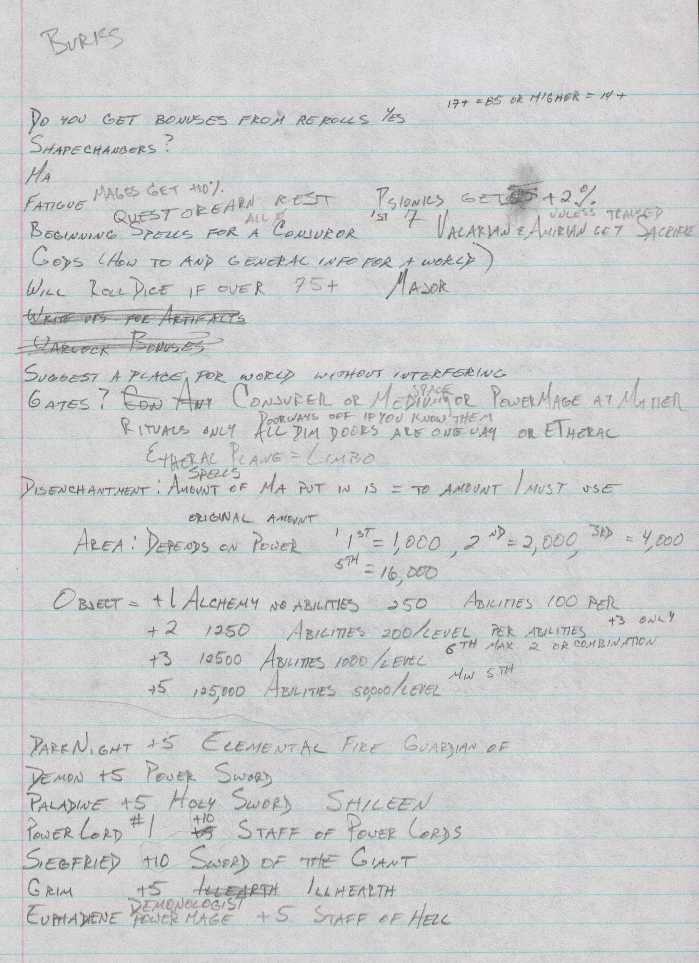 BURKS
17+ = 85 OR HIGHER = 14+
DO YOU GET BONUSES FROM REROLLS YES
SHAPECHANGERS?
MA
MAGES GET +10%
FATIGUE REST PSIONICS GET +2%
QUEST OR EARN ALL 1ST 7 UNLESS TRAINED
BEGINNING SPELLS FOR A CONJUROR VALARIAN & AMIRIAN GET SACRIFICE
GODS (HOW TO AND GENERAL INFO FOR A WORLD)
WILL ROLL DICE IF OVER 75+ MAJOR
WRITE UPS FOR ARTIFACTS
WARLOCK BONUSES
SUGGEST A PLACE FOR WORLD WITHOUT INTERFERING
SPACE
GATES? CON ANY CONJURER OR MEDIUM OR POWERMAGE AT MATTER
DOORWAYS OFF IF YOU KNOW THEM
RITUALS ONLY ALL DIM DOORS ARE ONE WAY OR ETHERAL
ETHERAL PLANE = LIMBO
SPELLS
DISENCHANTMENT: AMOUNT OF MA PUT IN IS = TO AMOUNT I MUST USE
ORIGINAL AMOUNT
AREA: DEPENDS ON POWER 1ST = 1,000, 2ND = 2,000, 3RD = 4,000
5TH = 16,000
OBJECT = +1 ALCHEMY NO ABILITIES 250 ABILITIES 100 PER
+2 1250 ABILITIES 200/LEVEL PER ABILITIES +3 ONLY
6TH MAX 2 OR COMBINATION
+3 12500 ABILITIES 1000/LEVEL
MIN 5TH
+5 125,000 ABILITIES 50,000/LEVEL
DARKNIGHT +5 ELEMENTAL FIRE GUARDIAN OF
DEMON +5 POWER SWORD
PALADINE +5 HOLY SWORD SHILEEN
POWER LORD #1 +10 +5 STAFF OF POWER LORDS
SIEGFRIED +10 SWORD OF THE GIANT
GRIM +5 ILLEARTH ILLHEARTH
DEMONOLOGIST
POWER MAGE +5 STAFF OF HELL